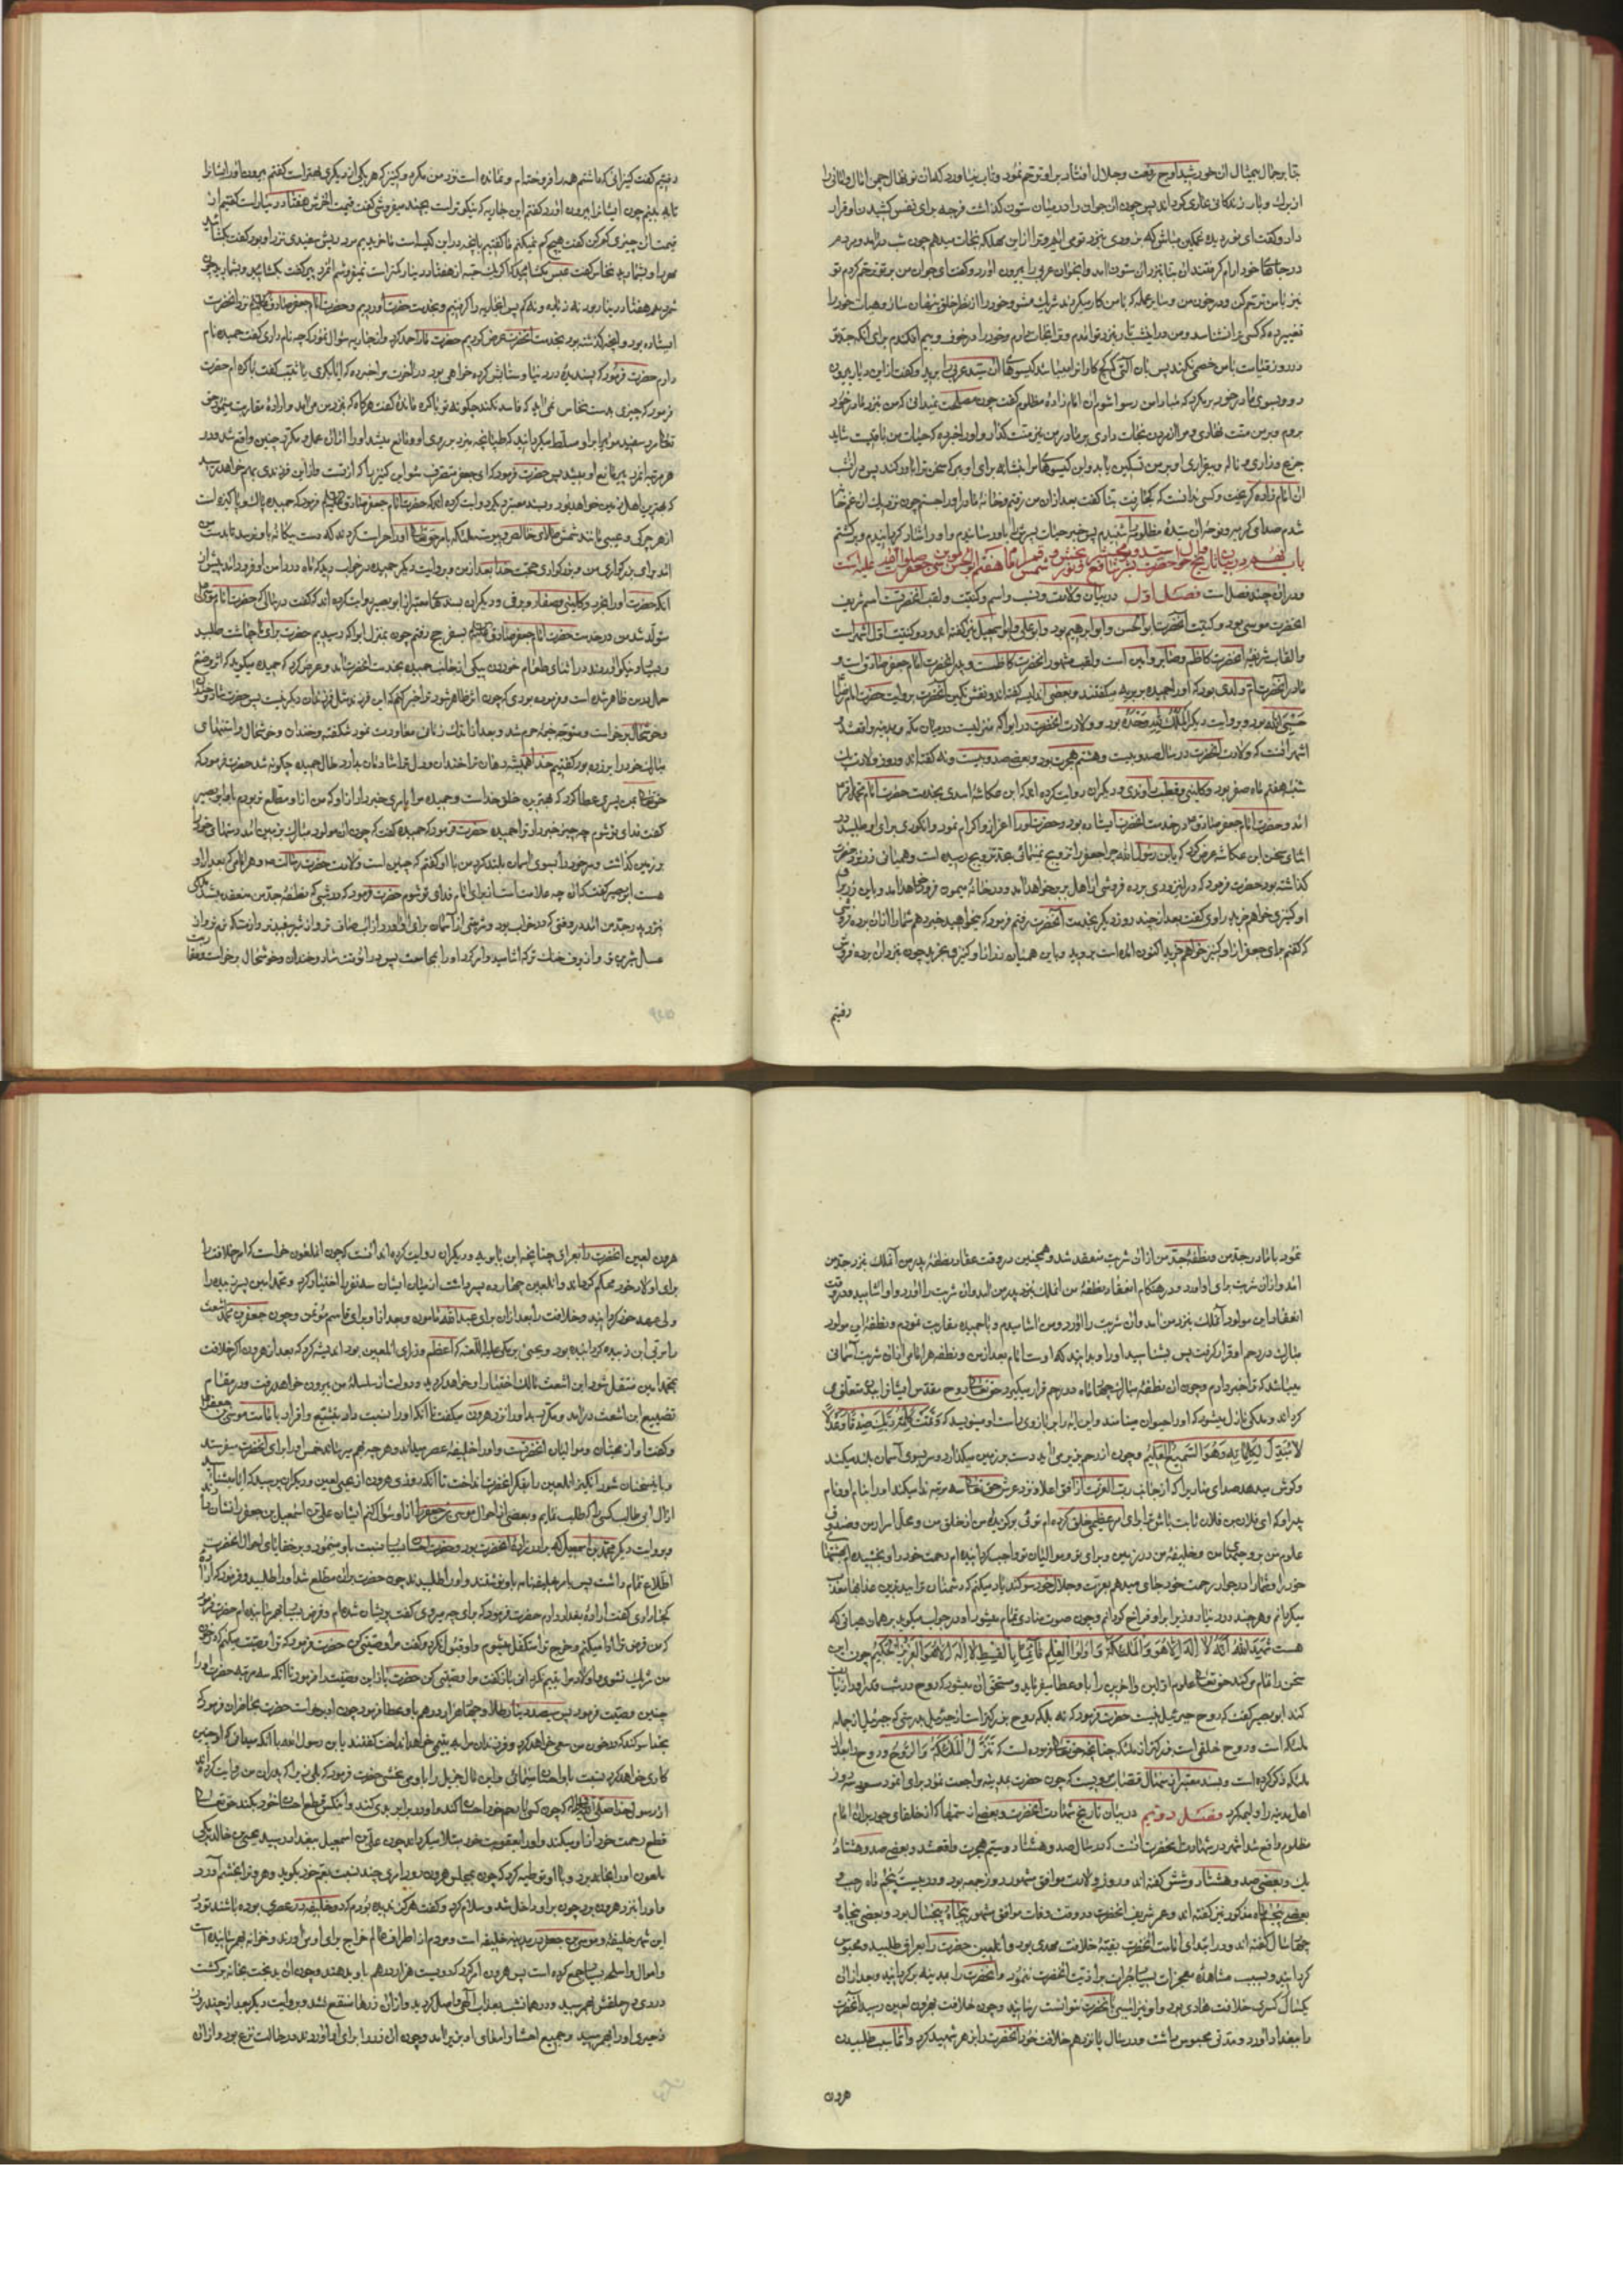 بنا بر جمال بیمثال ان خورشید اوج رفعت و جلال افتاد بر او ترحم نمود و تاب نیاورد که ان نونهال چمن
داد و گفت ای نور دیده غمگین مباش که بزودی نزد تو می ایم و ترا از این مهلکه نجات میدهم چون شب در امد و مردم
در جاهای خود ارام گرفتند ان بنا بنزد ان ستون امد و ان جوان عربی را بیرون اورد و گفت ای جوان من بر تو ترحم کردم تو
نیز با من ترحم کن و در خون من و سایر عمله که با من کار میکردند شریک مشو و خود را از نظر خلق پنهان ساز و هیات خود را
تغییر ده که کسی ترا نشناسد و من در این شب تار بنزد تو امدم و ترا نجات دادم و خود را در خوف و بیم افکندم برای انکه جد تو
در روز قیامت با من خصمی نکند پس بان التی که گچ کاران را میباشد گیسوهای ان سید عربی را برید و گفت از این دیار بیرون
رو و بسوی مادر خود بر مگرد که مبادا من رسوا شوم ان امام زاده مظلوم گفت چون مصلحت نمیدانی که من بنزد مادر خود
جزع و زاری و ناله و بیقراری او بر من تسکین یابد و این گیسوهای مرا بنشانه برای او ببر که سخن ترا باور کند پس در ان شب
ان امام زاده گریخت و کسی ندانست که کجا رفت بنا گفت بعد از ان من رفتم و خانه مادر او را جستم چون نزدیک ان غمخانه
شدم صدای گریه و نوحه ان سیده مظلومه را شنیدم پس خبر حیات پسرش را باو رسانیدم و او را شاد گردانیدم و برگشتم
و در ان چند فصل است فصل اول در بیان ولادت و نسب و اسم و کنیت و لقب انحضرتست اسم شریف
انحضرت موسی بود و کنیت انحضرت ابو الحسن و ابو ابراهیم بود و ابو علی و ابو اسمعیل نیز گفته اند و دو کنیت اول اشهر است
و القاب شریفه انحضرت کاظم و صابر و امین است و لقب مشهور انحضرت کاظمست و پدر انحضرت امام جعفر صادق است و
مادر انحضرت ام ولدی بود که او را حمیده بربریه میگفتند و بعضی اندلسیه گفته اند و نقش نگین انحضرت بروایت حضرت امام رضا
حسبی الله بود و بروایت دیگر الملک لله وحده بود و ولادت انحضرت در ابوا که منزلیست در میان مکه و مدینه واقع شد و
اشهر انست که ولادت انحضرت در سال صد و بیست و هشتم هجرت بود و بعضی صد و بیست و نه گفته اند و روز ولادت یک
شنبه هفتم ماه صفر بود و کلینی و قطب راوندی و دیگران روایت کرده اند که ابن عکاشه اسدی بخدمت حضرت امام محمد باقر
امد و حضرت امام جعفر صادق در خدمت انحضرت ایستاده بود و حضرت او را اعزاز و اکرام نمود و انگوری برای او طلبید در
اثنای سخن ابن عکاشه عرض کرد که یابن رسول الله چرا جعفر را تزویج نمینمائی بحد تزویج رسیده است و همیانی زر نزد حضرت
گذاشته بود حضرت فرمود که در این زودی برده فروشی از اهل بربر خواهد امد و در خانه میمون فرو خواهد امد و باین زر برای
او کنیزی خواهم خرید راوی گفت بعد از چند روز دیگر بخدمت انحضرت رفتم فرمود که میخواهید خبر دهم شما را از ان برده فروشی
که گفتم برای جعفر از او کنیز خواهم خرید اکنون امده است بروید و باین همیان زر از او کنیزی بخرید چون بنزد ان برده فروش
رفتیم
رفتیم گفت کنیزانی که داشتم همه را فروخته ام و نمانده است نزد من مگر دو کنیز که هر یک از دیگری بهتر است گفتم بیرون اور ایشانرا
تا به بینیم چون ایشانرا بیرون اورد گفتم این جاریه که نیکوتر است بچند میفروشی گفت قیمت اخرش هفتاد دینار است گفتیم از
قیمت ان چیزی کم کن گفت هیچ کم نمیکنم ما گفتیم بانچه در این کیسه است ما خریدیم مرد ریش سفیدی نزد او بود گفت بگشائید
مهر را و بشمارید نخاس گفت عبث مگشائید که اگر یک حبه از هفتاد دینار کمتر است نمیفروشم انمرد پیر گفت بگشائید و بشمارید چون
شمردیم هفتاد دینار بود نه زیاد و نه کم پس انجاریه را گرفتیم و بخدمت حضرت اوردیم و حضرت امام جعفر صادق نزد انحضرت
ایستاده بود و انچه گذشته بود بخدمت انحضرت عرض کردیم حضرت ما را حمد کرد و از جاریه سوال نمود که چه نام داری گفت حمیده نام
دارم حضرت فرمود که پسندیده در دنیا و ستایش کرده خواهی بود در اخرت مرا خبر ده که ایا بکری یا ثیب گفت باکره ام حضرت
فرمود که چیزی بدست نخاس نمی اید که فاسد نکند چگونه تو باکره مانده گفت هرگاه که بنزد من می امد و اراده مقاربت مینمود حق
تعالی مرد سفید موئی را بر او مسلط میگردانید که طپانچه میزد بر روی او و مانع میشد او را از ان عمل و مکرر چنین واقع شد و در
هر مرتبه انمرد پیر مانع او میشد پس حضرت فرمود که ای جعفر متصرف شو این کنیز را که از تست و از این فرزندی بهم خواهد رسید
که بهترین اهل زمین خواهد بود و بسند معتبر دیگر روایت کرده اند که حضرت امام جعفر صادق فرمود که حمیده پاک و پاکیزه است
از هر چرک و عیبی مانند شمش طلای خالص و پیوسته ملئکه بامر حق تعالی او را حراست کردند که دست بیگانه باو نرسد تا بدست من
امد برای بزرگواری من و بزرگواری حجت خدا بعد از من و بروایت دیگر حمیده در خواب دید که ماه در دامن او فرود امد پیش از
انکه حضرت او را بخرد و کلینی و صفار و برقی و دیگران بسندهای معتبر از ابو بصیر روایت کرده اند که گفت در سالی که حضرت امام موسی
متولد شد من در خدمت حضرت امام جعفر صادق بسفر حج رفتم چون بمنزل ابوا که رسیدیم حضرت برای ما چاشت طلبید
و بسیار و نیکو اوردند در اثنای طعام خوردن پیکی از جانب حمیده بخدمت انحضرت امد و عرض کرد که حمیده میگوید که اثر وضع
حمل در من ظاهر شده است و فرموده بودی که چون اثر ظاهر شود ترا خبر کنم که این فرزند مثل فرزندان دیگر نیست پس حضرت شاد و خندان
و خوشحال برخاست و متوجه خیمه حرم شد و بعد از اندک زمانی معاودت نمود شکفته و خندان و خوشحال و استینهای
مبارک خود را بر زده بود گفتیم خدا همیشه دهان ترا خندان و دل ترا شادمان بدارد حال حمیده چگونه شد حضرت فرمود که
حقتعالی بمن پسری عطا کرد که بهترین خلق خداست و حمیده مرا بامری خبر داد از او که من از او مطلع تر بودم بان ابو بصیر
گفت فدای تو شوم چه چیز خبر داد ترا حمیده حضرت فرمود که حمیده گفت که چون ان مولود مبارک بزمین امد دستهای خود را
بر زمین گذاشت و سر خود را بسوی اسمان بلند کرد من با او گفتم که چنین است ولادت حضرت رسالت و هر امامی که بعد از او
هست ابو بصیر گفت که این چه علامت است از برای امام فدای تو شوم حضرت فرمود که در شبی که نطفه جد من منعقد میشد ملکی
بنزد پدر جد من امد در وقتی که در خواب بود و شربتی از اسمان برای او اورد از اب صافتر و از شیر سفیدتر و از مسکه نرمتر و از
عسل شیرینتر و از برف خنک تر که اشامید و امر کرد او را بمجامعت پس بیدار گشت شاد و خندان و خوشحال برخاست و مقاربت
نمود با مادر جد من و نطفه جد من از ان شربت منعقد شد و همچنین در وقت عقد نطفه پدر من انملک بنزد جد من
امد و از ان شربت برای او اورد و در هنگام انعقاد نطفه من انملک بنزد پدر من امد و ان شربت را اورد و او اشامید و در وقت
انعقاد این مولود انملک بنزد من امد و ان شربت را اورد و من اشامیدم و با حمیده مقاربت نمودم و نطفه این مولود
مبارک در رحم او قرار گرفت پس بشناسید او را و بدانید که اوست امام بعد از من و نطفه هر امامی از ان شربت اسمانی
میباشد که ترا خبر دادم و چون ان نطفه مبارک چهار ماه در رحم قرار میگیرد حق تعالی روح مقدس ایشانرا بان متعلق می
گرداند و ملکی نازل میشود که او را حیوان مینامند و این ایه را بر بازوی راست او مینویسد که وتمت کلمة ربک صدقا وعدلا
لا مبدل لکلماته وهو السمیع العلیم و چون از رحم بزیر می اید دست بر زمین میگذارد و سر بسوی اسمان بلند میکند
علوم من بر وحی من و خلیفه من در زمین و برای تو و موالیان تو واجب گردانیده ام رحمت خود را و بخشیده ام بهشتهای
خود را و شما را در جوار رحمت خود جای میدهم بعزت و جلال خود سوگند یاد میکنم که دشمنان ترا بیدترین عذابها معذب
میگردانم و هر چند در دنیا روزی را بر او فراخ گردانم و چون صوت منادی تمام میشود او در جواب میگوید بر همان هیاتی که
هست شهد الله انه لا اله الا هو والملئکة واولوا العلم قائما بالقسط لا اله الا هو العزیز الحکیم چون این
سخن را تمام میکند حق تعالی علوم اولین و اخرین را باو عطا میفرماید و مستحق ان میشود که روح در شب قدر او را زیارت
کند ابو بصیر گفت که روح جبرئیل نیست حضرت فرمود که نه بلکه روح بزرگتر است از جبرئیل بدرستی که جبرئیل از جمله
ملئکه است و روح خلقی است بزرگتر از ملئکه چنانچه حق تعالی فرموده است که تنزل الملئکة والروح و روح را جدا از
ملئکه ذکر کرده است و بسند معتبر از منهال قصاب مرویست که چون حضرت بمدینه مراجعت نمود برای مولود سعود سه روز
اهل مدینه را ولیمه کرد فصل دویم در بیان تاریخ شهادت انحضرت و بعضی از ستمها که از خلفای جور بر ان امام
مظلوم واقع شد اشهر در شهادت انحضرت انست که در سال صد و هشتاد و سیم هجرت واقع شد و بعضی صد و هشتاد
یک و بعضی صد و هشتاد و شش گفته اند و روز ولادت موافق مشهور در روز جمعه بود و در بیست پنجم ماه رجب و
بعضی پنجم ماه مذکور نیز گفته اند و عمر شریف انحضرت در وقت وفات موافق مشهور پنجاه پنجسال بود و بعضی پنجاه
چهار سال گفته اند و در ابتدای امامت انحضرت بقیه خلافت مهدی بود و انلعین حضرت را بعراق طلبید و محبوس
گردانید و بسبب مشاهده معجزات بسیار جرات بر اذیت انحضرت ننمود و انحضرت را بمدینه برگردانید و بعد از ان
یکسال کسری خلافت هادی بود و او نیز اسیبی بانحضرت نتوانست رسانید و چون خلافت بهرون لعین رسید انحضرت
را ببغداد اورد و مدتی محبوس داشت و در سال پانزدهم خلافت خود انحضرت را بزهر شهید کرد و اما سبب طلبیدن
هرون
هرون لعین انحضرت را بعراق چنانچه ابن بابویه و دیگران روایت کرده اند انست که چون انلعون خواست که امر خلافت را
برای اولاد خود محکم گرداند و انلعین چهارده پسر داشت از میان ایشان سه نفر را اختیار کرد و محمد امین پسر زبیده را
ولی عهد خود گردانید و خلافت را بعد از ان برای عبدالله مامون و بعد از او برای قاسم موتمن و چون جعفر بن محمد اشعث
را مربی ابن زبیده گردانیده بود و یحیی برمکی علیه اللعنه که اعظم وزرای انلعین بود اندیشه کرد که بعد از هرون اگر خلافت
بمحمد امین منتقل شود ابن اشعث مالک اختیار او خواهد گردید و دولت از سلسله من بیرون خواهد رفت و در مقام
تضییع ابن اشعث در امد و مکرر بد او را نزد هرون میگفت تا انکه او را نسبت داد بتشیع و اقرار بامامت موسی بن جعفر
و گفت او از محبان و موالیان انحضرتست و او را خلیفه عصر میداند و هر چه بهم میرساند خمس او را برای انحضرت میفرستد
و باین سخنان شورانگیز انلعین را بفکر انحضرت انداخت تا انکه روزی هرون از یحیی لعین و دیگران پرسید که ایا میشناسید
و بروایت دیگر محمد بن اسمعیل که برادر زاده انحضرت بود و حضرت احسان بسیار نسبت باو مینمود و بر خفایای احوال انحضرت
اطلاع تمام داشت پس بامر خلیفه نامه باو نوشتند و او را طلبیدند چون حضرت بران مطلع شد او را طلبید و فرمود که اراده
کجا داری گفت اراده بغداد دارم حضرت فرمود که برای چه میروی گفت پریشان شده ام و قرض بسیار بهم رسانیده ام حضرت فرمود
که من قرض ترا ادا میکنم و خرج ترا متکفل میشوم او قبول نکرد و گفت مرا وصیتی کن حضرت فرمود که ترا وصیت میکنم که در خون
من شریک نشوی و اولاد مرا یتیم نگردانی باز گفت مرا وصیتی کن حضرت باز این وصیت را فرمود تا انکه سه مرتبه حضرت او را
چنین وصیت فرمود پس سیصد دینار طلا و چهار هزار درهم باو عطا فرمود چون او برخاست حضرت بحاضران فرمود که
بخدا سوگند که در خون من سعی خواهد کرد و فرزندان مرا به یتیمی خواهد انداخت گفتند یابن رسول الله با انکه میدانی که او چنین
کاری خواهد کرد نسبت باو احسان مینمائی و این مال جزیل را باو می بخشی حضرت فرمود که بلی زیرا که پدران من روایت کرده اند
از رسول خدا که چون کسی با رحم خود احسان کند و او در برابر بدی کند و انکس قطع احسان خود نکند حق تعالی
قطع رحمت خود از او میکند و او را بعقوبت خود مبتلا میگرداند چون علی بن اسمعیل ببغداد رسید یحیی بن خالد برمکی
ملعون او را بخانه برد و با او توطیه کرد که چون بمجلس هرون رود امری چند نسبت بعم خود بگوید و هرون را بخشم اورد
و او را بنزد هرون برد چون بر او داخل شد و سلام کرد و گفت هرگز ندیده بودم که دو خلیفه در عصری بوده باشند تو در
این شهر خلیفه و موسی بن جعفر در مدینه خلیفه است و مردم از اطراف عالم خراج برای او می اورند و خزانه بهمرسانیده است
و اموال و اسلحه بسیار جمع کرده است پس هرون امر کرد که دویست هزار درهم باو بدهند و چون ان بدبخت بخانه برگشت
دردی در حلقش بهم رسید و در همانشب بعذاب الهی واصل گردید و از ان زرها منتفع نشد و بروایت دیگر بعد از چند روز
زحیری او را بهم رسید و جمیع احشا و امعای او بزیر امد و چون ان زر را برای او اوردند در حالت نزع بود و از ان